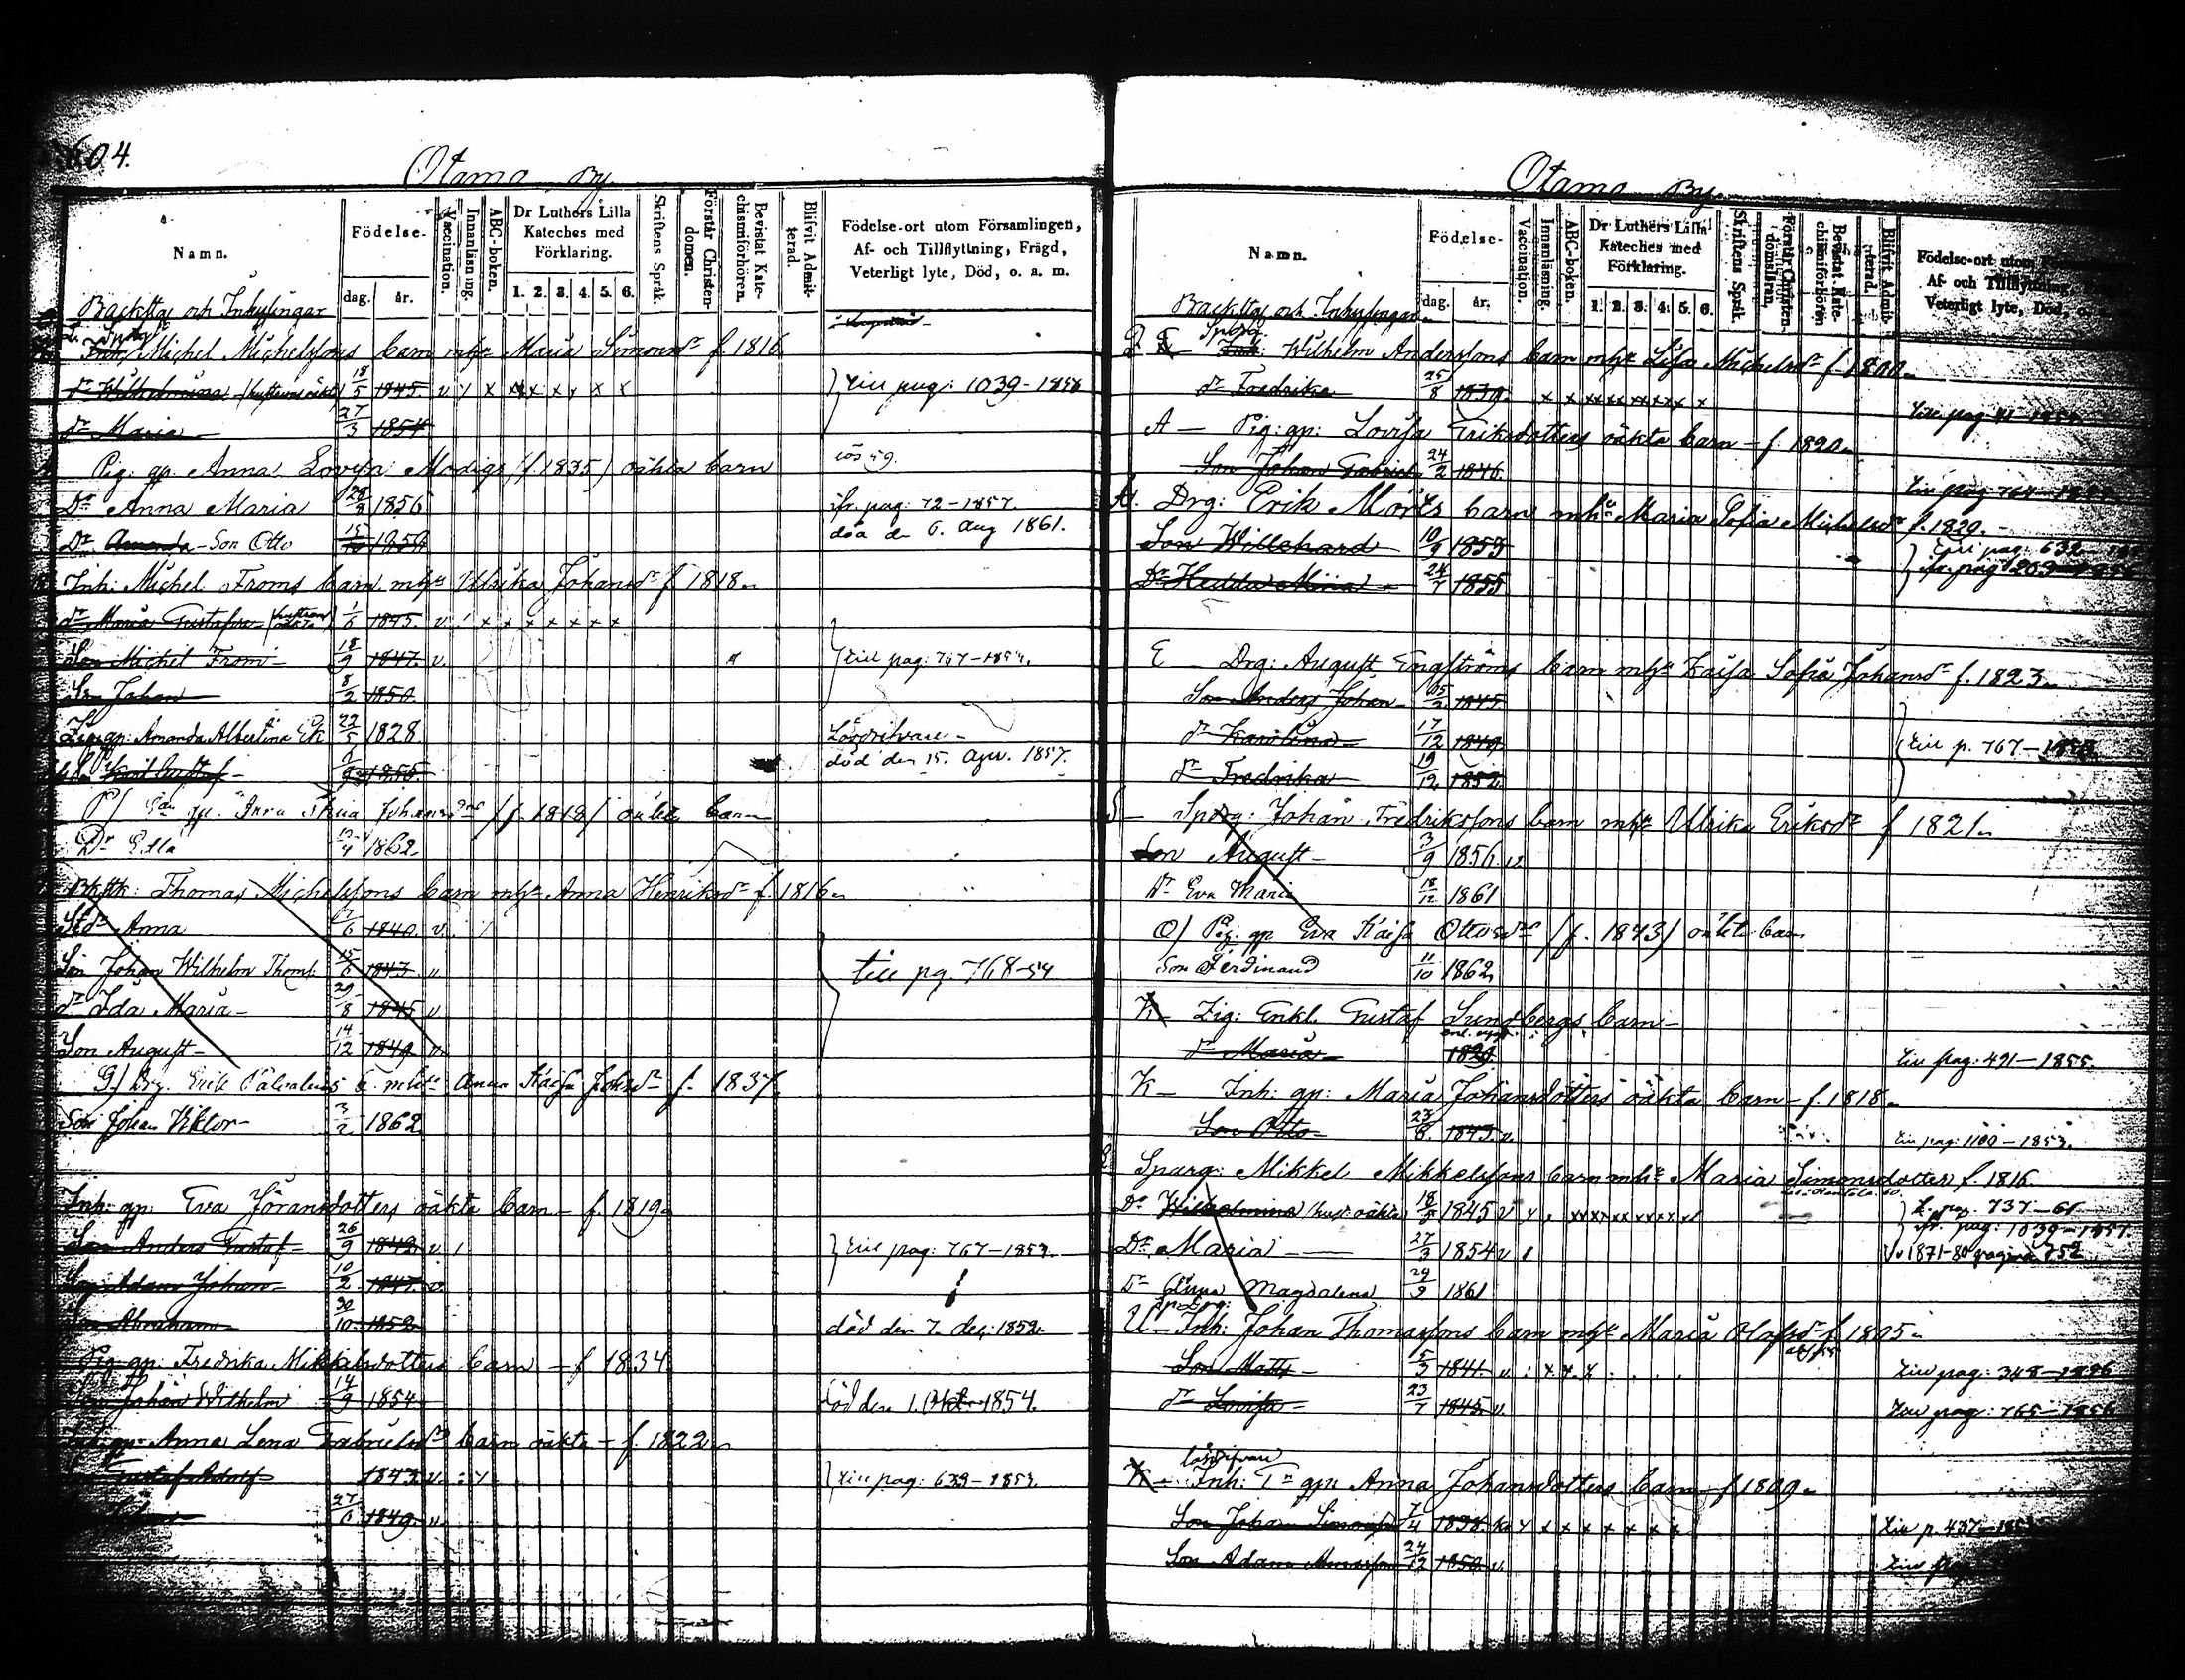 604.
Otamo By.
Namn.
Födelse-
dag. år.
Vaccination.
Innanläsning.
ABC-boken.
Dr Luthers Lilla Kateches med Förklaring.
1. 2. 3. 4. 5. 6.
Skriftens Språk.
Förstår Christendomen.
Bevistat Katechismiförhören.
Blifvit Admitterad.
Födelse-ort utom Församlingen, Af- och Tillflyttning, Frägd, Veterligt lyte, Död, o. a. m.
Backstug och Inhysingar
Michel Michelssons barn mhu Maria Simonsdr f 1816
dr Wilhelmina 18/5 1845. v y x xxx x x x x
till pag: 1039-1856
dr Maria 27/3 1854
Pig: gp. Anna Lovisa Modigs (f. 1835) oäkta barn
Dr Anna Maria 1856 ifr. pag: 72-1857.
Dr Amanda - Son Otto 15/10 1859 död d. 6. Aug 1861.
Inh: Michel Froms barn mhu Ulrika Johansdr f 1818
dr Maria Gustafva 1/6 1845. v / x x x x x x x
Son Michel From 18/9 1847. v. till pag: 767-1857.
Son Johan 8/2 1850.
gp: Amanda Albertina Ek 22/5 1828 Lösdrifvare
Karl Gustaf 1855 död den 15. Apr. 1857.
gp. Johansdr (f. 1818) oäkta barn
Dr Ella 1862
Thomas Michelssons barn mhu Anna Henriksdr f. 1816
Anna 1840. v. /
Son Johan Wilhelm 15/6 1843. v till pg. 768-54
dr Ida Maria 29/8 1845 v
Son August 14/12 1849 v.
G) Drg. Erik b. mhu Anna Kaisa Johsdr f. 1837.
Son Johan Viktor 3/2 1862
Inh: gp: Eva Jöransdotters oäkta barn - f 1819
Son Anders Gustaf 26/9 1842 v / till pag: 767-1857.
Son Adam Johan 10/2 1847. v.
Son Abraham 30/10 1852 död den 7. dec: 1852.
Pig gp: Fredrika Mikkelsdotters barn - f 1834
Son Johan Wilhelm 14/9 1854 död den 1. Okt. 1854.
Inh: gp: Anna Lena Gabrielsdr barn oäkta - f. 1822
Son Gustaf Adolf 1843. v. till pag: 639-1857.
27/6 1849. v
Otamo By.
Namn.
Födelse-
dag. år.
Vaccination.
Innanläsning.
ABC-boken.
Dr Luthers Lilla Kateches med Förklaring.
1. 2. 3. 4. 5. 6.
Skriftens Språk.
Förstår Christendomsläran.
Bevistat Katechismiförhören
Blifvit Admitterad.
Födelse-ort utom
Af- och Tillflyttning,
Veterligt lyte, Död, o.
Backstug och Inhysingar
Wilhelm Anderssons barn mhu Lisa Michelsdr f. 1800
dr Fredrika 25/8 1839. x x xx xx xxxx x
A - Pig: gp: Lovisa Eriksdotters oäkta barn - f. 1820
Son Johan Gabriel 24/2 1846.
till pag 764-
A. Drg: Erik Mörks barn mhu Maria Sofia Michelsdr f. 1829.
Son Willehard 10/9 1853 till pag: 632
Dr Hedda Maria 24/7 1855 ifr. pag: 203
E - Drg: August Engströms barn mhu Kaisa Sofia Johansdr f. 1823
Son Anders Johan 1845.
dr Karolina 17/12 1849 till p. 767-
dr Fredrika 19/12 1852
S - Sparg: Johan Fredrikssons barn mhu Ulrika Eriksdr f 1821
Son August 3/9 1856. v
Dr Eva Maria 18/12 1861
O) Pig. gp Eva Kaisa Ottosdr (f. 1843) oäkta barn
Son Ferdinand 11/10 1862
K - Zig: Enkl. Gustaf Sundbergs barn
dr Maria 1829 till pag: 491-1855.
K - Inh: gp: Maria Johansdotters oäkta barn - f. 1818
Son Otto 1843. v. till pag: 1100-1857.
Sparg: Mikkel Mikkelssons barn mhu Maria Simonsdotter f. 1816
Dr Wilhelmina 18/5 1845 v y xxxx xxxxxx
t. pag. 737-61
ifr. pag: 1039-1857.
Dr Maria 27/3 1854 v / 1871-80 pagina 752
Dr Anna Magdalena 24/9 1861
U - Inh: Johan Thomassons barn mhu Maria Olofsdr f. 1805
Son Matts 5/3 1841. v x x x till pag: 348-1856
dr Lovisa 23/7 1845. v. till pag: 765-1856
lösdrifvare
K - Inh: gp: Anna Johansdotters barn f 1809
Son Johan Simonsson 7/4 1838. y x x x x x x x till p. 437-
Son Adam 24/12 1850. v.